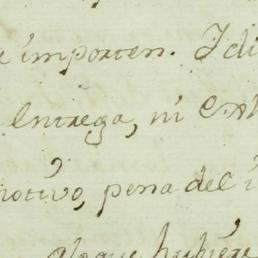 importen. Y di
entrega, ni ex
motivo, pena del
que hubiere